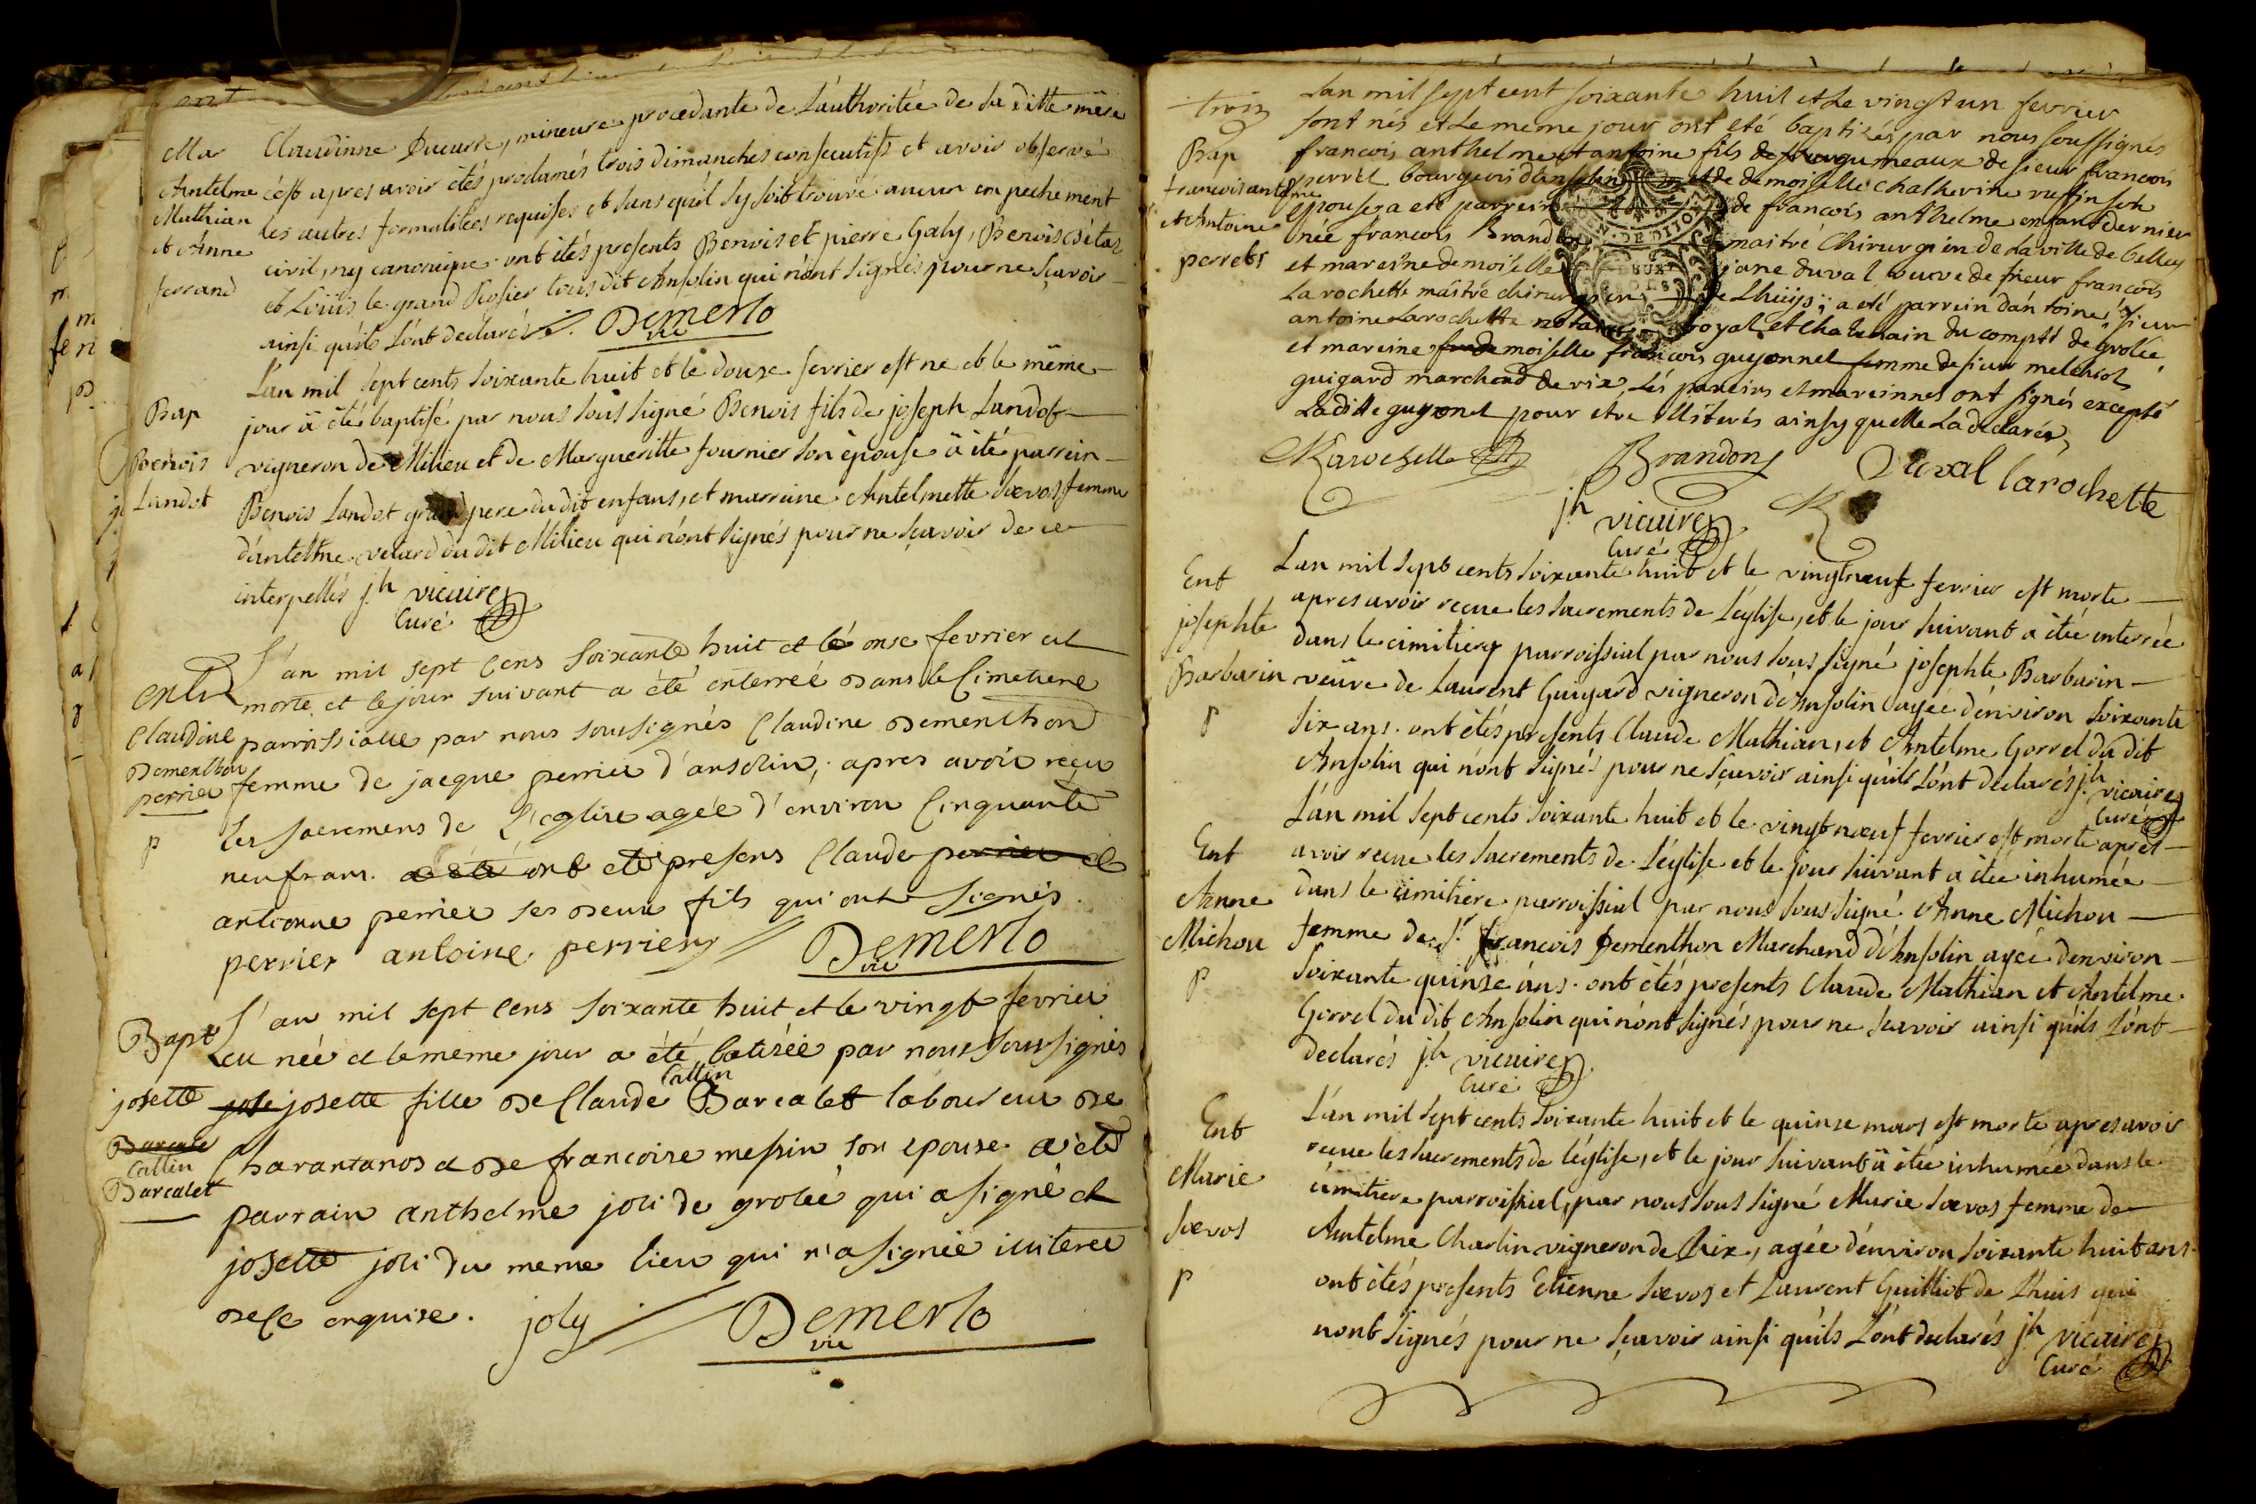 Mar
Antelme
Mathian
et Anne
ferrand
Claudinne Ducurre, mineure procedante de L'authoritée de sa ditte mere
c'est apres avoir étés proclamés trois dimanches consecutifs et avoir observé
les autres formalitées requises et sans qu'il s'y soit trouvé aucun empechement
civil, ny canonique. ont étés presents Benoist et pierre Galy, Benois
et Loüis le grand Rosier tous d'Ansolin qui n'ont signés pour ne sçavoir
ainsi qu'ils l'ont declarés //. Demerlo
vic
Bap
Benois
Landot
L'an mil sept cents soixante huit et le douze fevrier est ne et le même
jour a été baptisé par nous sous signé Benois fils de joseph Landot
vigneron de Milieu et de Margueritte fournier son épouse a été parrein
Benois Landot grand pere du dit enfans, et marreine Antelmette Sevos femme
d'antelme velard du dit Milieu qui n'ont signés pour ne sçavoir de ce
interpellés jh vicaire
Curé
entr
Claudine
Dementhon
perrier
p
L'an mil sept Cens Soixante huit et le onse fevrier est
morte et le jour suivant a été enterreé dans le Cimetiere
parroissialle par nous sousignés Claudine Dementhon
femme de jacque perrier d'ansolin, apres avoir reçu
les sacremens de L'eglise agée d'environ Cinquante
neuf ans. a été ont eté presens Claude perrier et
antoinne perrier ses deux fils qui ont signés.
perrier antoine perrier // Demerlo
vic
Bapt
josette
Barcalet
Cattin
Barcalet
L'an mil sept Cens Soixante huit et le vingt fevrier
est née et le meme jour a été batisée par nous soussignés
Cattin
jose josette fille de Claude Barcalet laboureur de
Charantanos et de francoise messin son epouse a eté
parrain anthelme joli de groleé qui a signé et
josette joli du meme lieu qui n'a signée illiteree
de ce enquise. joly // Demerlo
vic
Bap
francois anthelme
et Antoine
perrets
Lan mil sept cent soixante huil et Le vingt un fevrier
sont nés et Le meme jour ont eté baptisés par nous soussignés
francois anthelme et antoine fils de jumeaux de sieur francois
perret bourgeois d'ansolin et de demoiselle chatherine ruffin son
epouse, a eté parrein de francois anthelme enfant dernier
née francois Brandon maitré Chirurgien de La ville de belley
et mareine demoiselle jane duval veuve de sieur francois
La rochette maitré chirurgien de Lhuys; a eté parrein d'antoine; sieur
antoine Larochette notaire royal et chatelain du compté de grolée
et mareine demoiselle francois guyonnet femme de sieur melchiol
guigard marchand de rix Les pareins et mareinnes ont signés excepté
Laditte guyonet pour étre illiterés ainsy quelle La declarée,
Larochette Brandon Duval larochette
jh vicaire
Curé
Ent
josephte
Barbarin
p
L'an mil sept cents soixante huit et le vingtneuf fevrier est morte
apres avoir reçue les sacrements de L'eglise, et le jour suivant a étée interrée
dans le cimitiere parroissial par nous sous signé josephte Barbarin
veüve de Laurent Guigard vigneron d'Ansolin agée d'environ soixante
six ans. ont étés presents Claude Mathian, et Antelme Gorrel du dit
Ansolin qui n'ont signés pour ne sçavoir ainsi qu'ils L'ont declarés jh vicaire
Curé
Ent
Anne
Michon
p
L'an mil sept cents soixante huit et le vingt neuf fevrier est morte apres
avoir reçue les sacrements de L'eglise et le jour suivant a étée inhumée
dans le cimitiere parroissial par nous sous signé Anne Michon
femme de sr. françois Dementhon Marchand d'Ansolin agée d'environ
soixante quinze ans. ont étés presents Claude Mathian et Antelme
Gorrel du dit Ansolin qui n'ont signés pour ne sçavoir ainsi qu'ils L'ont
declarés jh vicaire
Curé
Ent
Marie
Sevos
p
L'an mil sept cents soixante huit et le quinze mars est morte apres avoir
reçue les sacrements de L'eglise, et le jour suivant a étée inhumée dans le
cimitiere parroissial, par nous sous signé Marie Sevos femme de
Antelme Charlin vigneron de Rix, agée d'environ soixante huit ans.
ont étés presents Etienne Sevos et Laurent Guilliot de Lhuis qui
n'ont signés pour ne sçavoir ainsi qu'ils L'ont declarés jh vicaire
Curé